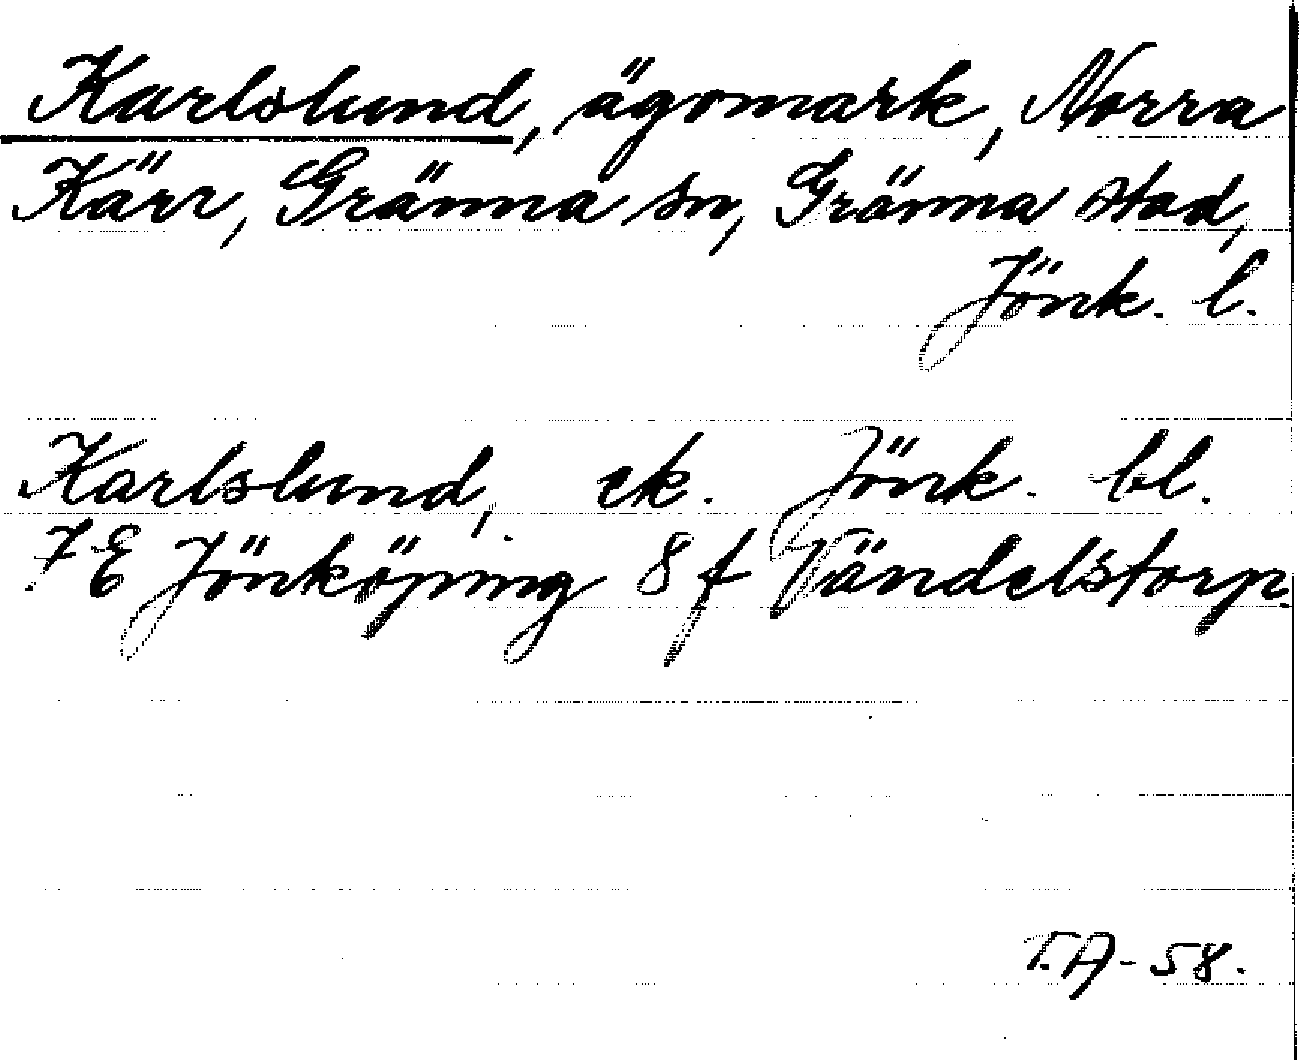 Karlslund, ägomark, Norra
Kärr, Gränna sn, Gränna stad,
Jönk. l.
Karlslund, ek. Jönk. bl.
7 E Jönköping 8 f Vändelstorp.
T.A-58.